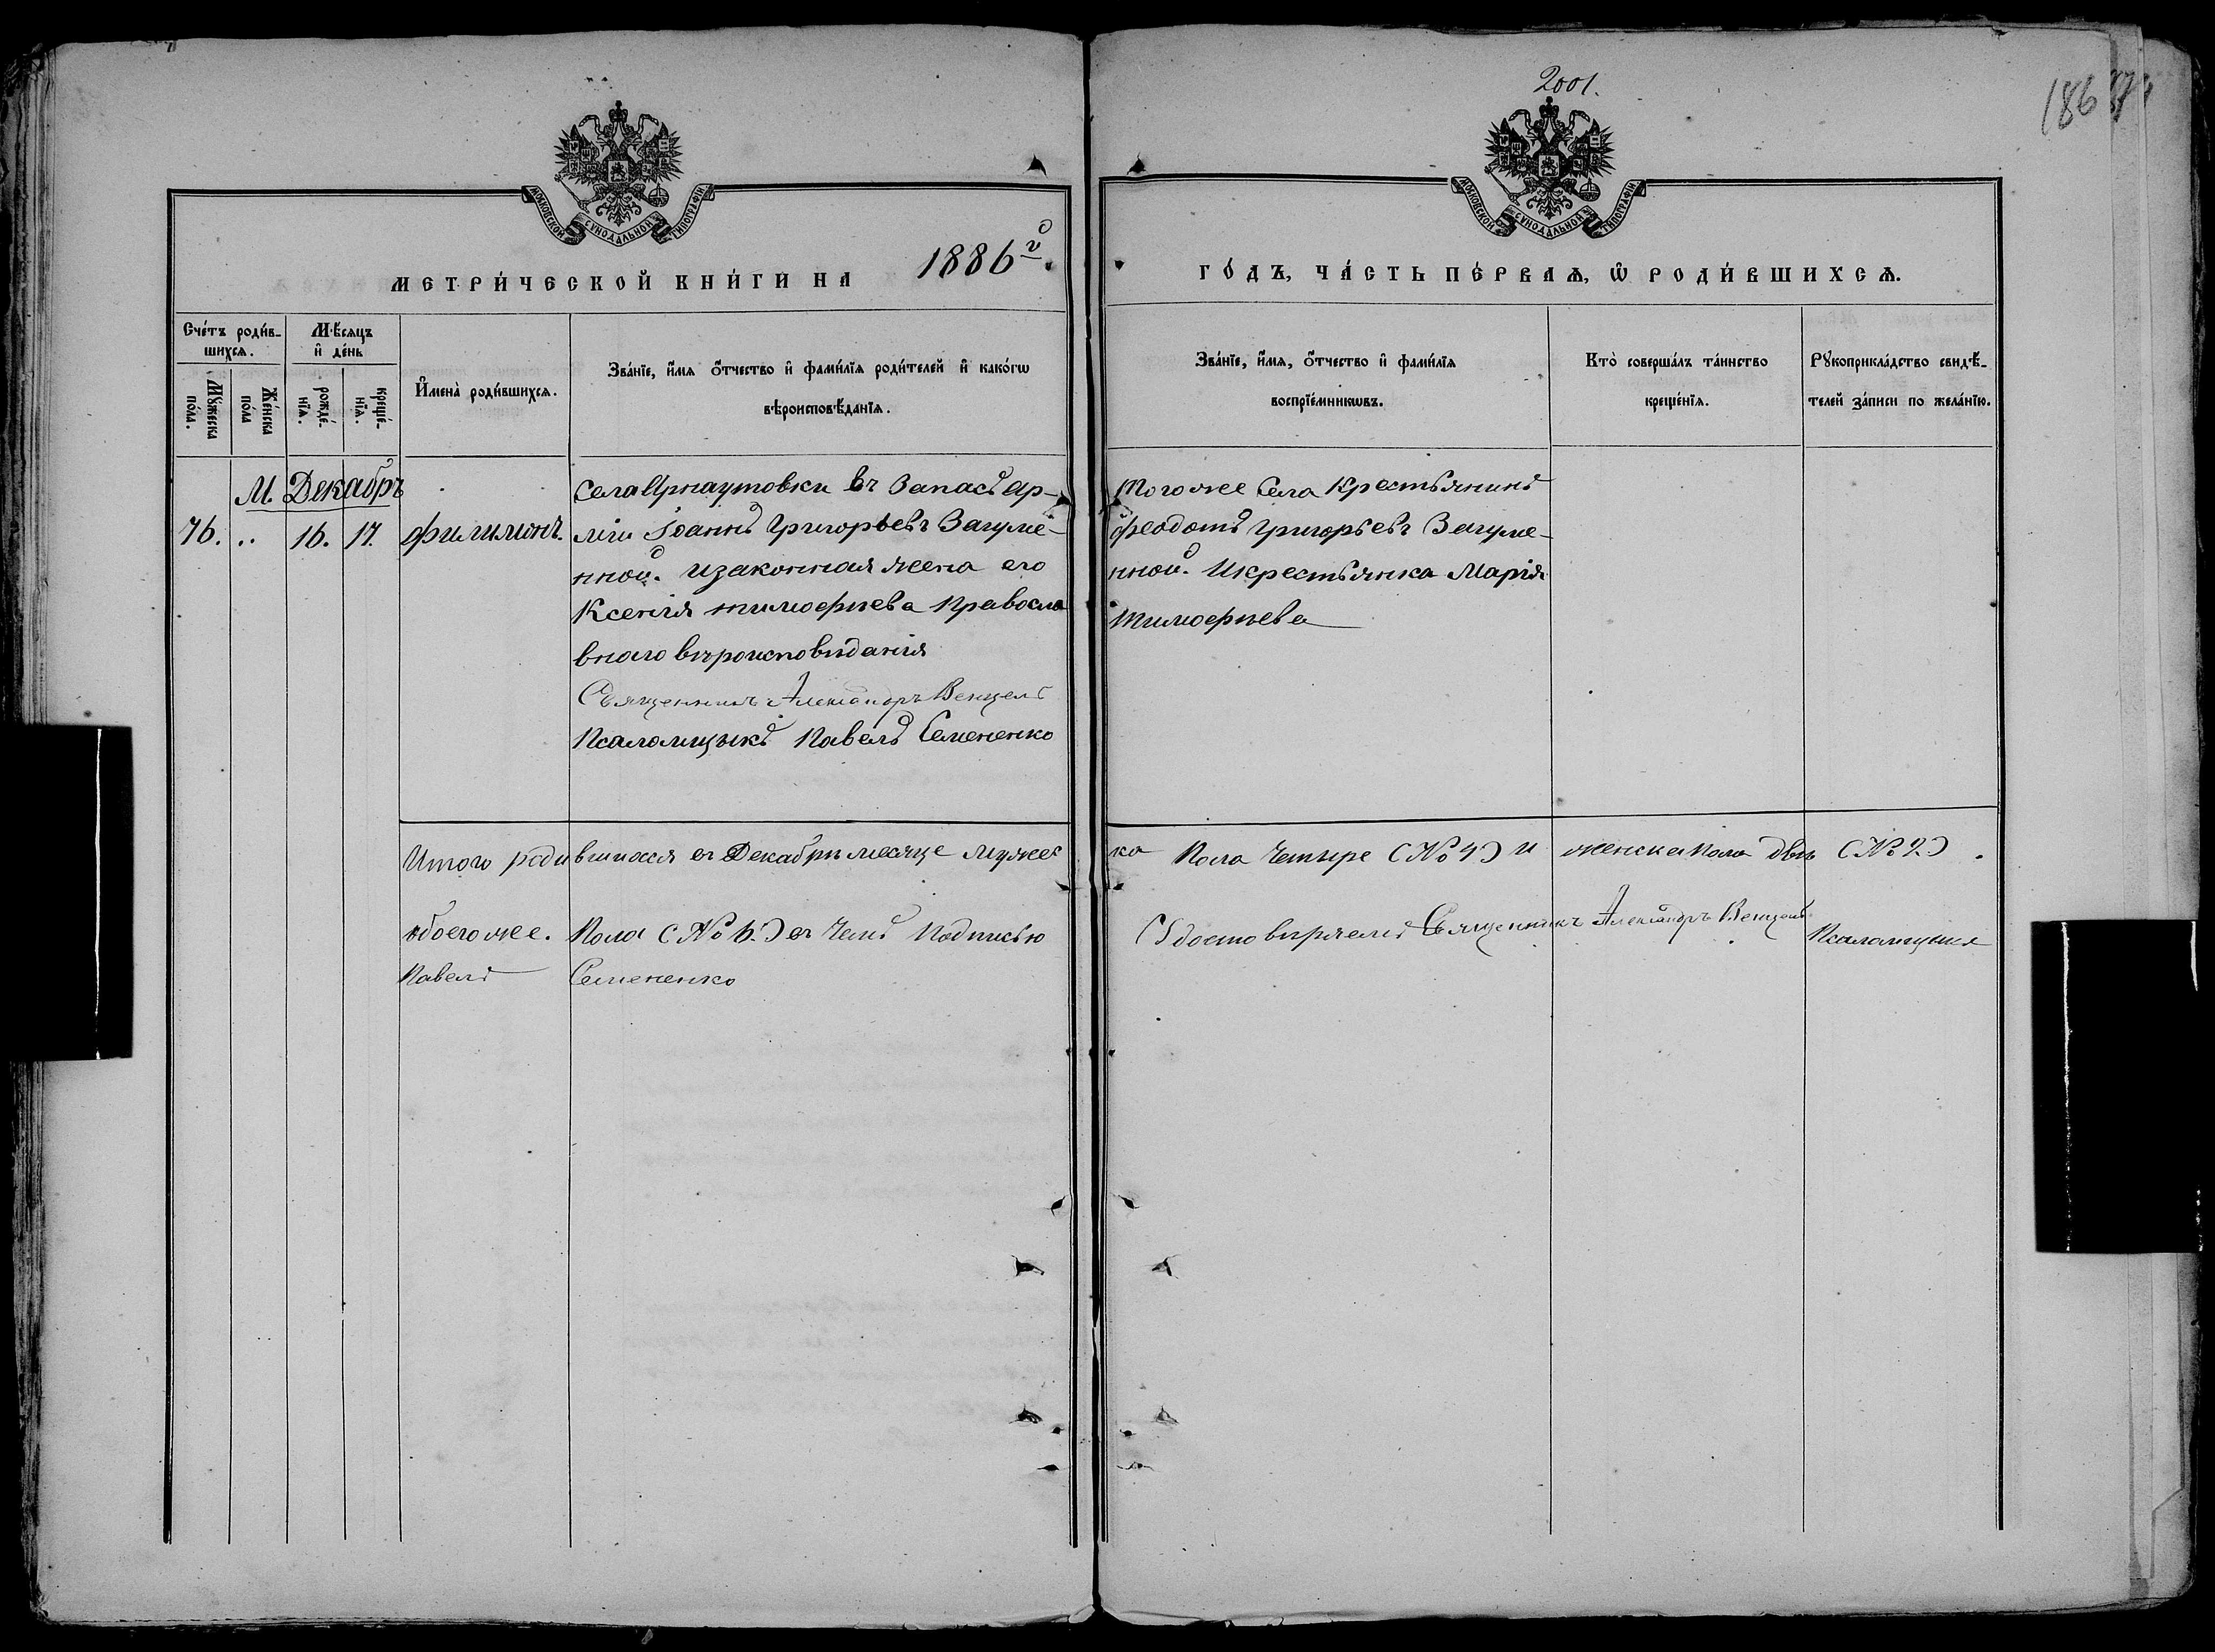 2001.
186
МОСКОВСКОЙ СѴНОДАЛЬНОЙ ТИПОГРАФІИ
МОСКОВСКОЙ СѴНОДАЛЬНОЙ ТИПОГРАФІИ
МЕТРИ́ЧЕСКОЙ КНИ́ГИ НА 1886 г̑д.
ГО́ДЪ, ЧА́СТЬ ПЕ́РВАѦ, Ѡ҆ РОДИ́ВШИХСѦ.
Сче́тъ роди́в-
шихсѧ.
Мꙋ́жеска
по́ла.
Же́нска
по́ла
Мѣ́сѧцъ
и҆ де́нь
рожде́-
нїѧ.
креще́-
нїѧ.
И҆мена̀ роди́вшихсѧ.
Зва́нїе, и҆́мѧ ѻ҆́тчество и҆ фами́лїѧ роди́телей и҆ како́гѡ
вѣроисповѣ́данїѧ.
Зва́нїе, и҆́мѧ, ѻ҆́тчество и҆ фами́лїѧ
воспрїе́мникѡвъ.
Кто̀ соверша́лъ та́инство
креще́нїѧ.
Рꙋкоприкла́дство свидѣ́-
телей за́писи по жела́нїю.
М. Декабрь
76. .. 16. 17. Филимонъ.
Села Арнаутовки въ Запасѣ ар-
міи Іоаннъ Григорьевъ Загуме-
нной. и законная жена его
Ксенія тимофѣева Правосла
внаго вѣроисповѣданія
Священникъ Александръ Венцель
Псаломщикъ Павелъ Семененко
Того же Села Крестьянинъ
Феодотъ Григорьевъ Загуме-
нной. И крестьянка Марія
Тимофѣева
Итого родившихся въ Декабрѣ месяце мужес
ка Пола Четыре (№ 4) и женска пола двѣ (№ 2) .
обоего же. Пола (№ 6.) въ Чемъ Подписью
Удостовѣряемъ Священникъ Александръ Венцель Псаломщикъ
Павелъ Семененко